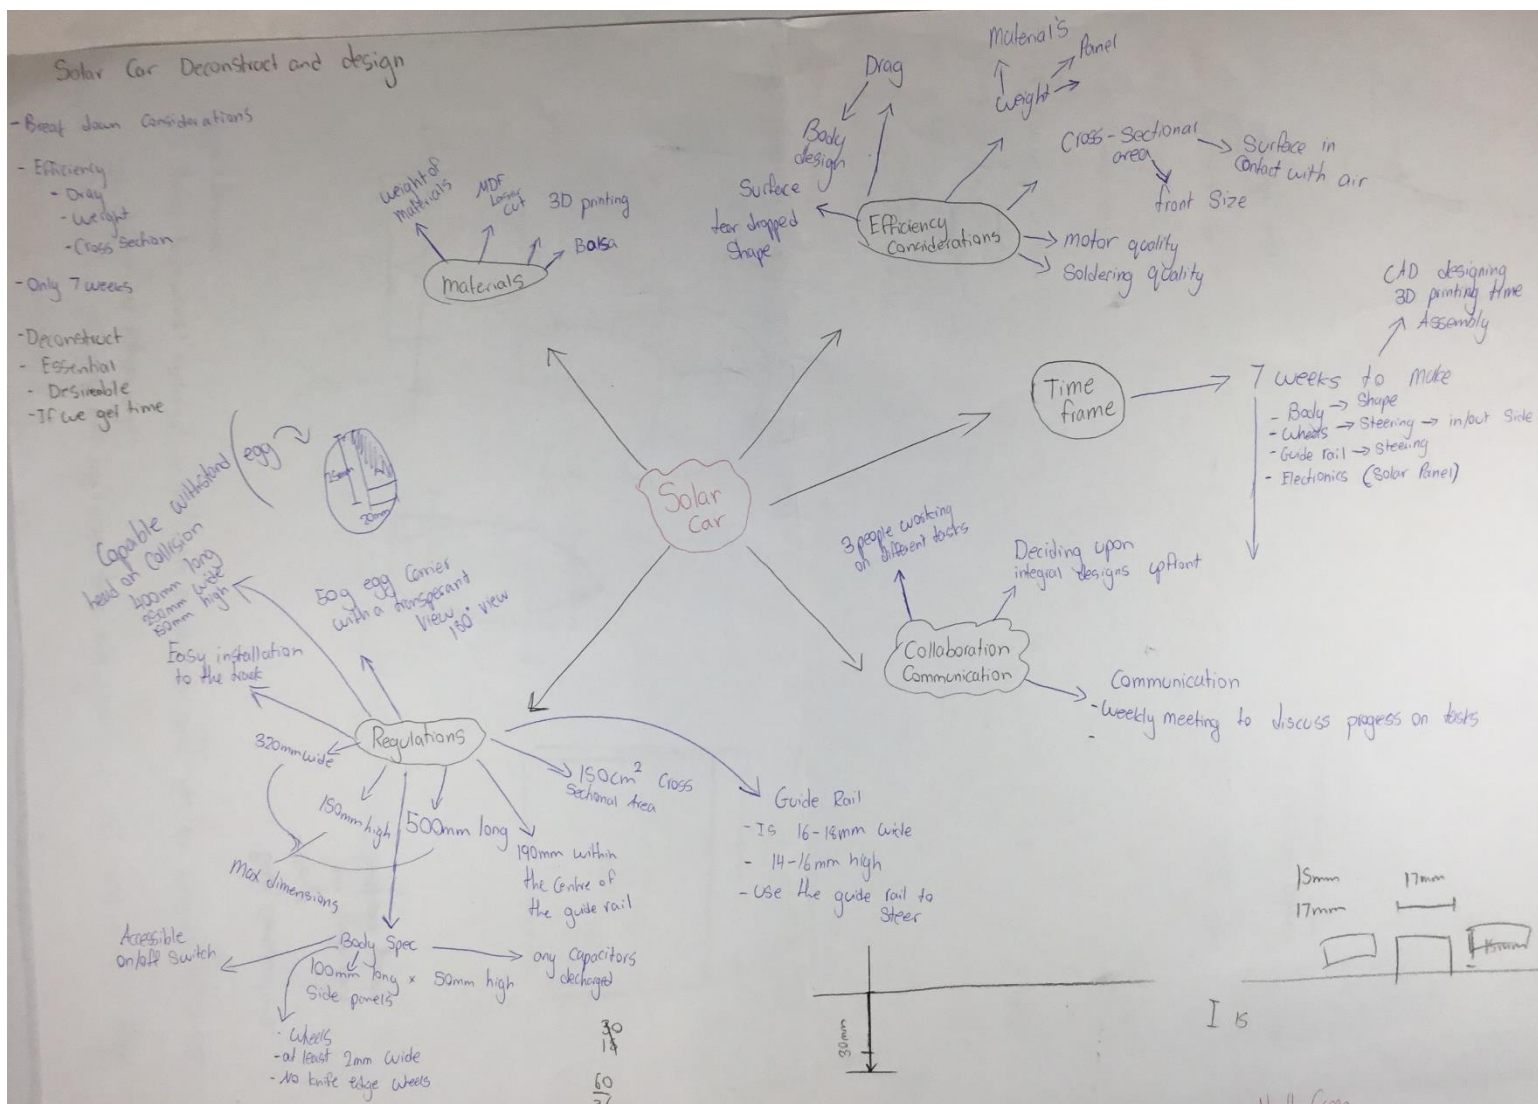 Solar Car Deconstruct and design
- Break down Considerations
- Efficiency
- Drag
- Weight
- Cross Section
- Only 7 weeks
- Deconstruct
- Essential
- Desireable
- If we get time
Solar
Car
Materials
weight of
materials
MDF
Laser
Cut
3D printing
Balsa
Efficiency
Considerations
Drag
Body
design
Surface
tear dropped
Shape
Material's
Panel
Weight
Cross-Sectional
area
Surface in
Contact with air
front Size
motor quality
Soldering quality
Time
frame
7 weeks to make
- Body → Shape
- Wheels → Steering → in/out Side
- Guide rail → Steering
- Electronics (Solar Panel)
CAD designing
3D printing time
Assembly
Collaboration
Communication
3 people working
on different tasks
Deciding upon
integral designs upfront
Communication
- Weekly meeting to discuss progress on tasks
-
Regulations
Capable withstand
head on Collision
400mm long
150mm high
egg
20mm
50g egg Carrier
with a transperant
View
180° view
Easy installation
to the track
320mm wide
150mm high
500mm long
Max dimensions
190mm within
the centre of
the guide rail
150cm² Cross
Sectional Area
Guide Rail
- Is 16-18mm wide
- 14-16mm high
- use the guide rail to
Steer
Body Spec
Accessible
on/off Switch
100mm long × 50mm high
Side panels
any Capacitors
decharged
- Wheels
- at least 2mm wide
- No knife edge wheels
30
60
30mm
15mm
17mm
17mm
15mm
I is